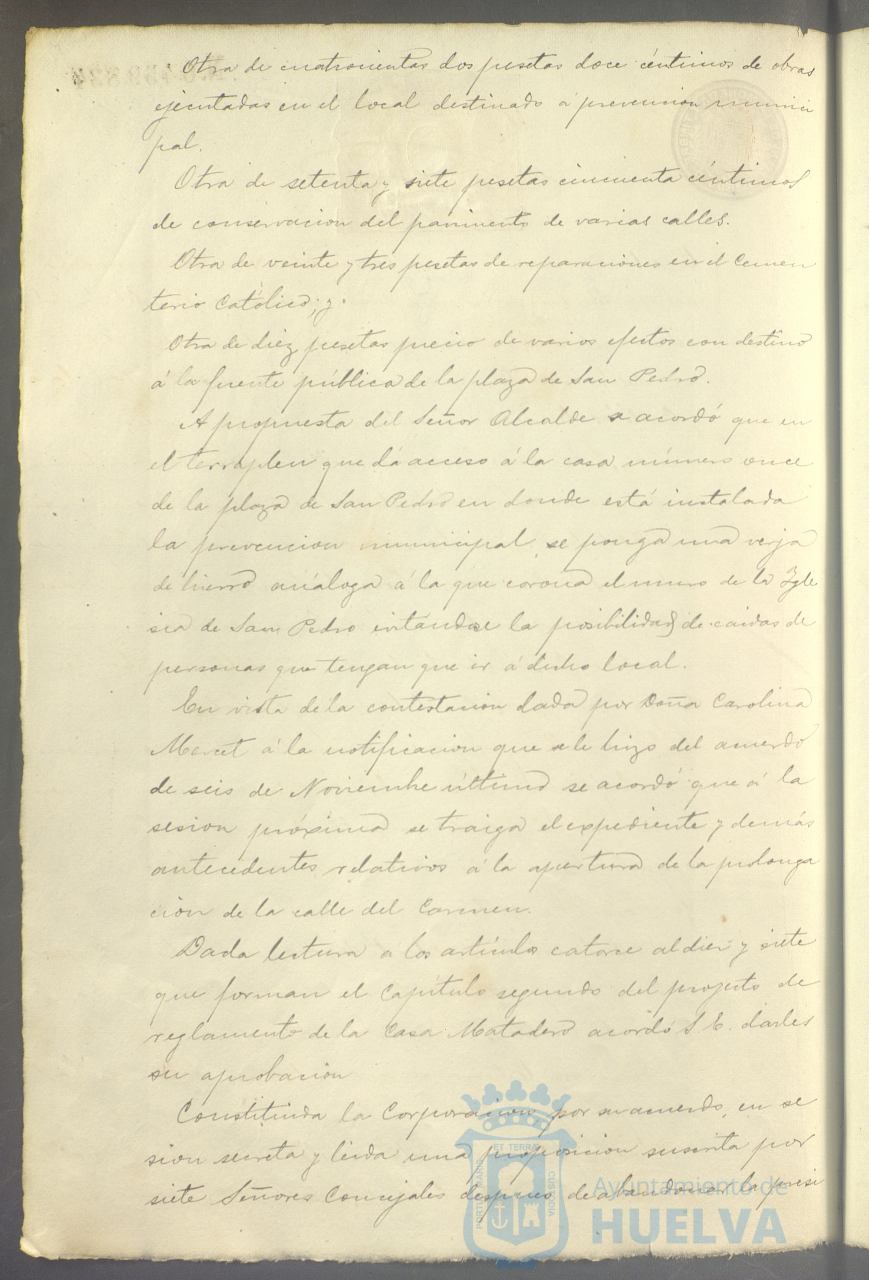 Otra de cuatrocientas dos pesetas doce céntimos de obras
ejecutadas en el local destinado á prevencion munici
pal.
Otra de setenta y siete pesetas cincuenta céntimos
de conservacion del pavimento de varias calles.
Otra de veinte y tres pesetas de reparaciones en el Cemen
terio Católico; y.
Otra de diez pesetas precio de varios efectos con destino
á la fuente pública de la plaza de San Pedro.
A propuesta del Señor Alcalde se acordó que en
el terraplen que dá acceso á la casa número once
de la plaza de San Pedro en donde está instalada
la prevencion municipal, se ponga una verja
de hierro análoga á la que corona el muro de la Ygle
sia de San Pedro evitándose la posibilidad de caidas de
personas que tengan que ir á dicho local.
En vista de la contestacion dada por Doña Carolina
á la notificacion que se le hizo del acuerdo
de seis de Noviembre último se acordó que á la
sesion próxima se traiga el expediente y demás
antecedentes relativos á la apertura de la prolonga
cion de la calle del Carmen.
Dada lectura a los artículos catorce al diez y siete
que forman el Capítulo segundo del proyecto de
reglamento de la Casa Matadero acordó S. E. darles
su aprobacion
Constituida la Corporacion, por su acuerdo, en se
sion secreta y leida una proposicion suscrita por
siete Señores Concejales despues de abandonar la presi
PORTUS MARIS ET TERRAE CUSTODIA
Ayuntamiento de
HUELVA